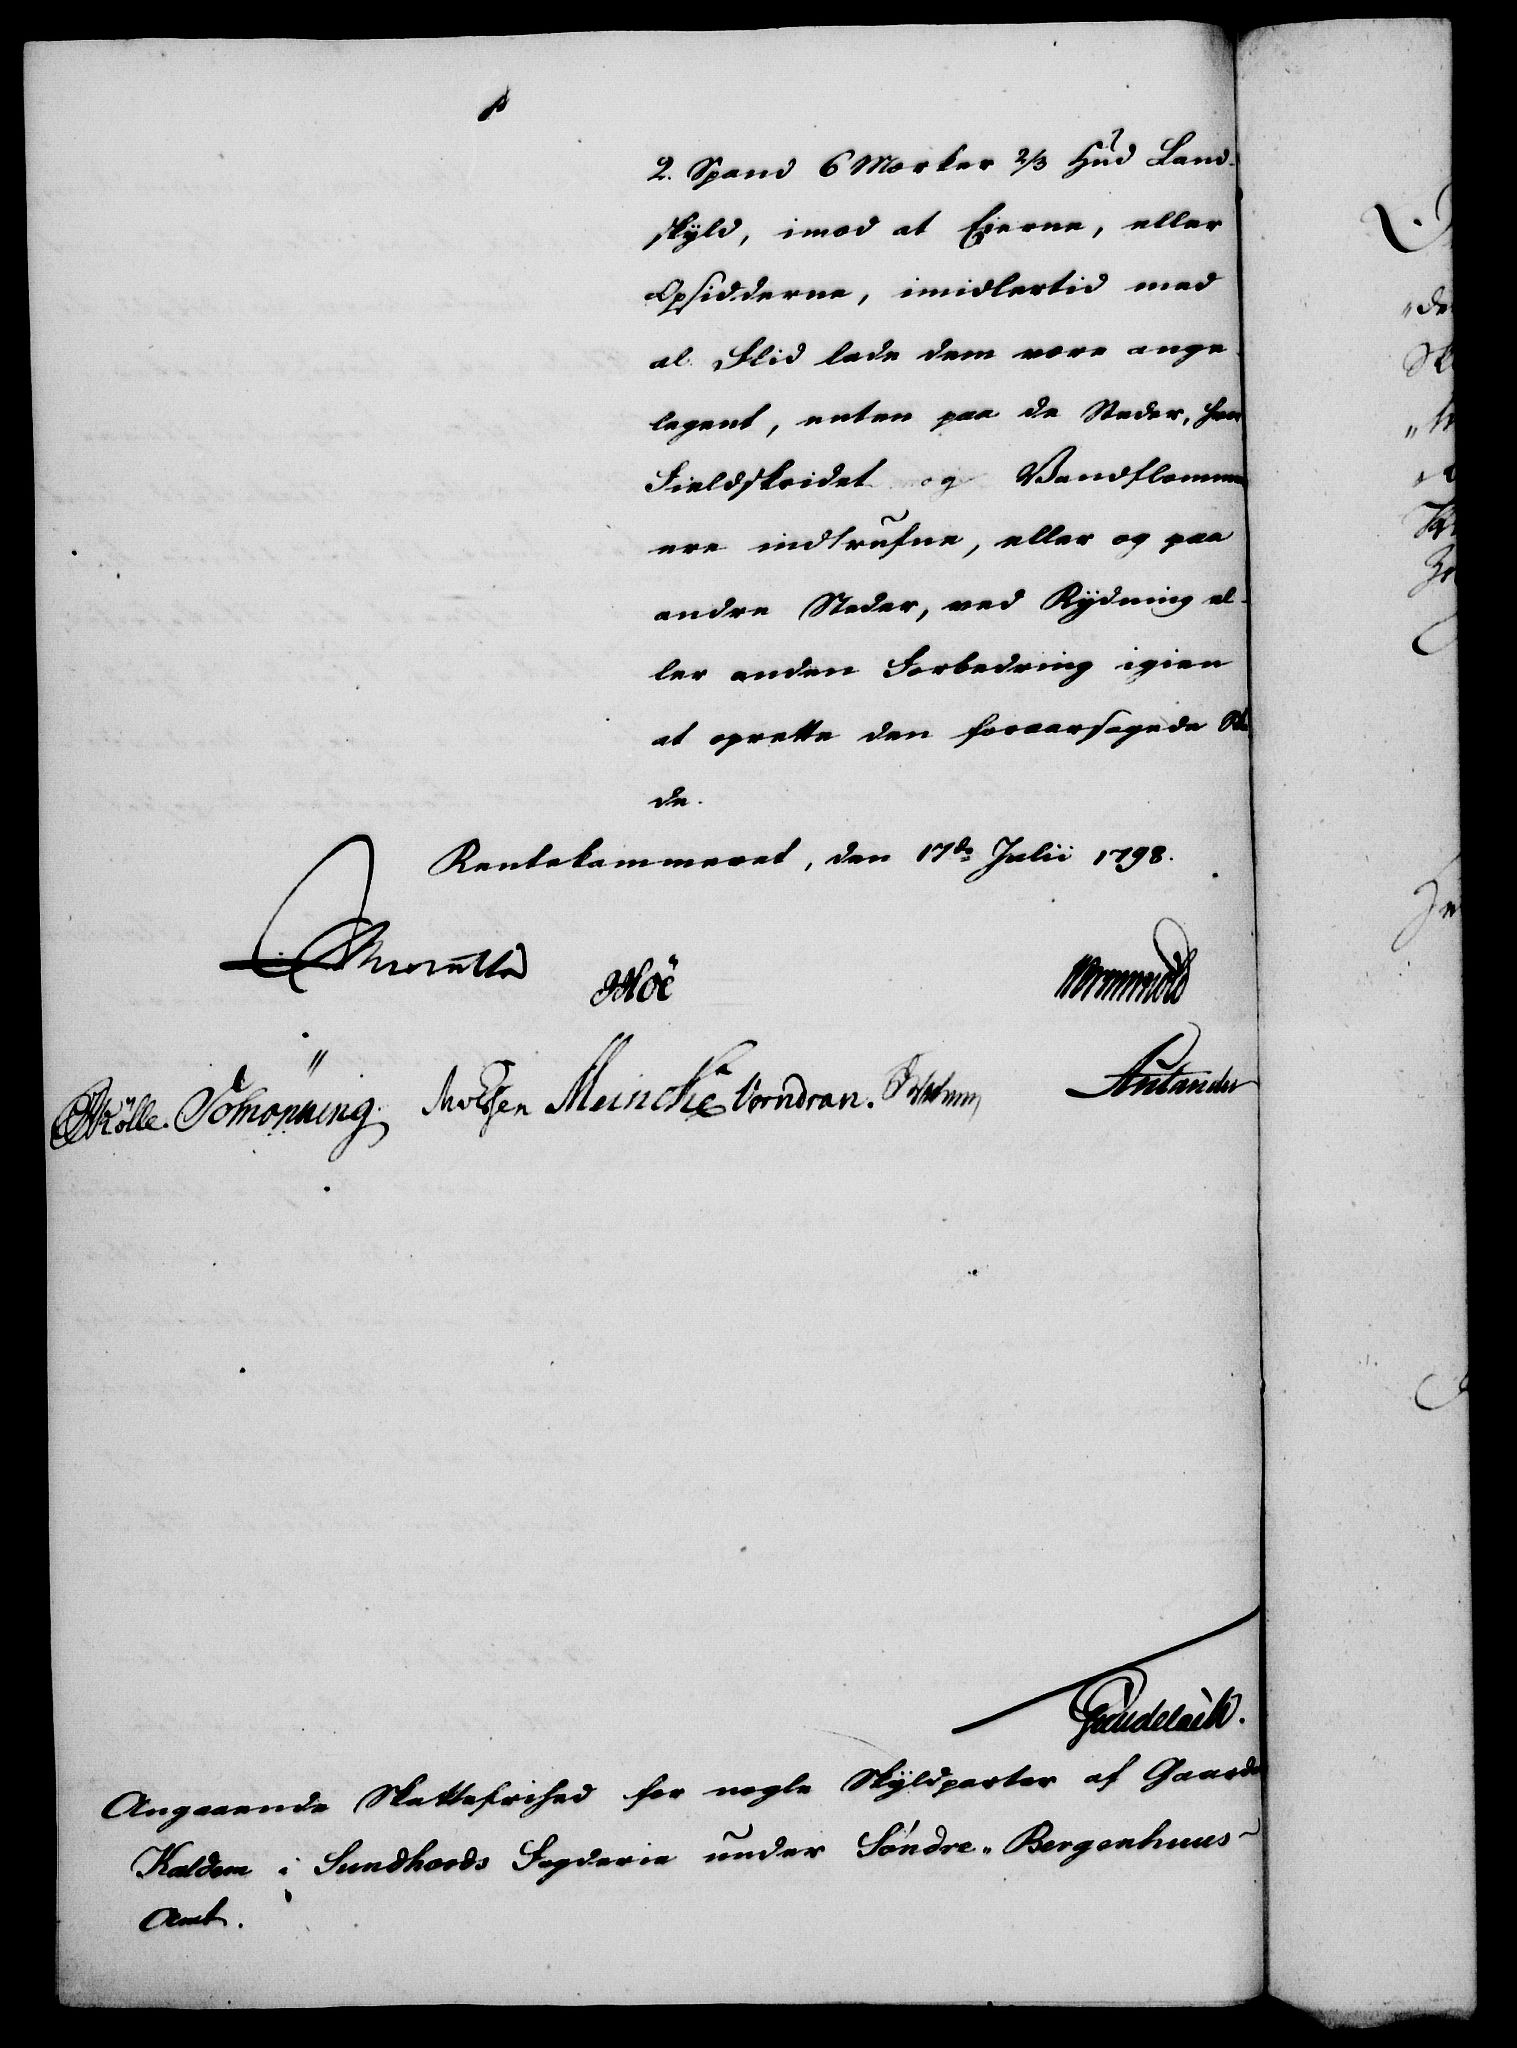 2. Spand 6 Marker 2/3 Hud Land-
skyld, imod at Eierne, eller
Opsidderne, imidlertid med
al Flid lade dem være ange-
legent, enten paa de Steder, hvor
Fieldskridet og Vandflommen
ere indtrufne, eller og paa
andre Steder, ved Rydning el-
ler anden Forbedring igien
at oprette den foraarsagede Ska-
de.
Rentekammeret, den 17de Julii 1798.
Wormskiold
Schrønning Meincke Vorndran.
Angaaende Skattefrihed for nogle Skyldparter af Gaarden
Kaldem i Sundhords Fogderie under Søndre-Bergenhuus-
Amt.